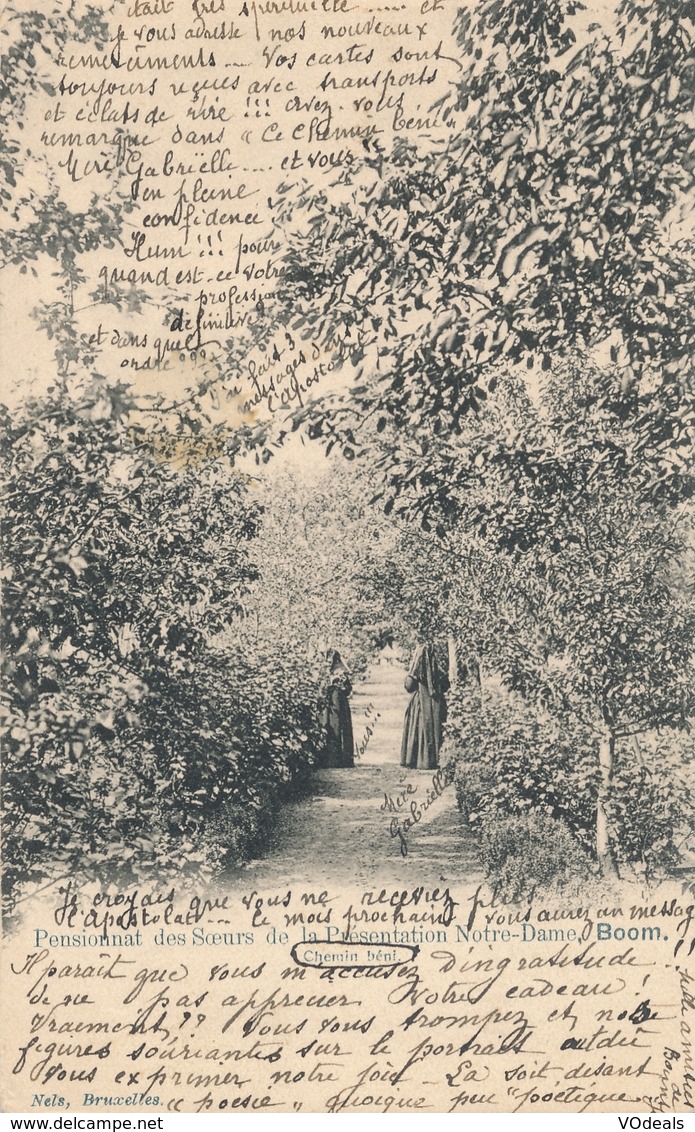 était très spirituelle ..... et
je vous adresse nos nouveaux
remerciements ... Vos cartes sont
toujours reçues avec transports
et éclats de rire !!! avez-vous
remarqué dans "Ce chemin béni"
Mère Gabriëlle .... et vous
en pleine
confidence!
Hum !!! pour
quand est-ce votre
profession
définitive
et dans quel
ordre ???
J'ai fait 3
messages dans
l'apostolat
vous !!!
Mère
Gabriëlle
Je croyais que vous ne receviez plus
l'Apostolat... Le mois prochain vous aurez un message
Pensionnat des Sœurs de la Présentation Notre-Dame, Boom.
Chemin béni.
Il paraît que vous m'accusez d'ingratitude
de ne pas apprécier Votre cadeau!
Vraiment?? Vous vous trompez et nos
figures souriantes sur le portrait ont dû
vous exprimer notre joie - La soit disant
"poésie" quoique peu "poétique"
Nels, Bruxelles.